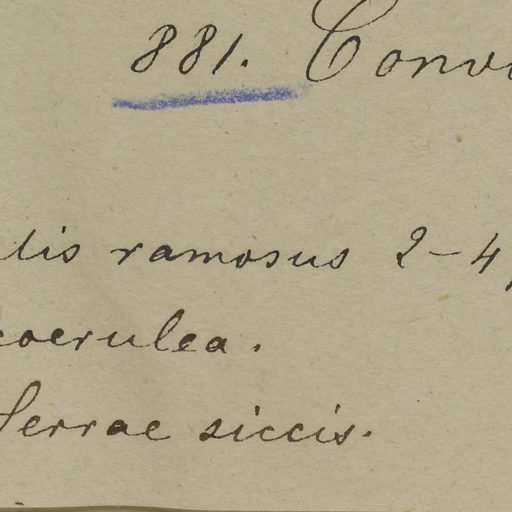 881. Conv
lis ramosus 2-4
coerulea.
Serrae siccis.